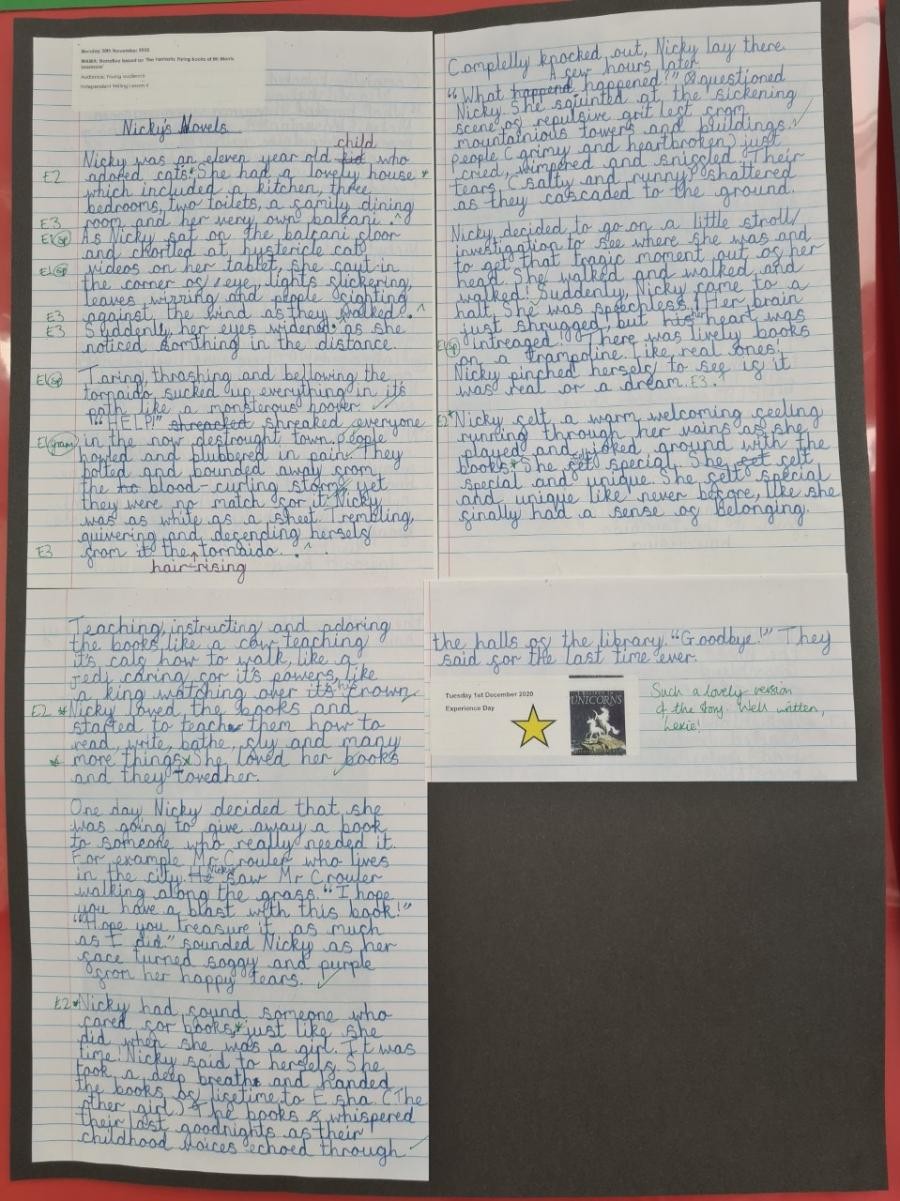 Monday 30th November 2020
WAMA: Narrative based on 'The Fantastic Flying Books of Mr Morris
Lessmore'
Audience: Young audience
Independent Writing Lesson 4
Nicky's Novels
child
Nicky was an eleven year old kid who
E2 adored cats* She had a lovely house *
which included a kitchen, three
bedrooms, two toilets, a family dining
E3 room and her very, own balcani. ^
E1 sp As Nicky sat on the balcani floor
and chortled at hystericle cat
E1 sp videos on her tablet, she cayt in
the corner of eye, lights flickering,
leaves wizzing and people fighting
E3 against, the wind as they walked. ^
E3 Suddenly, her eyes widened. as she
noticed somthing in the distance.
E1 sp Taring, thrashing and bellowing the
tornaido sucked up everything in it's
path like a monsterous hoover
"HELP!" shreacked shreaked everyone
E1 gram in the now destrought town. people
howled and plubbered in pain. They
bolted and bounded away from
the to blood-curling storm, yet
they were no match for it. Nicky
was as white as a sheet. Trembling,
quivering and defending herself
E3 from it the tornaido. . ^
hair-rising
Complelly knocked out, Nicky lay there
A few hours later
"What happend happened?" questioned
Nicky. She squinted at the sickening
scene of repulsive grit left from
mountainious towers and buildings.
people (grimy and heartbroken) just
cried, wimpered and sniffled. Their
tears (salty and runny) shattered
as they cascaded to the ground.
Nicky decided to go on a little stroll/
investigation to see where she was and
to get that tragic moment out of her
head. She walked and walked, and
walked! Suddenly, Nicky came to a
halt, She was speechless! Her brain
just shrugged, but his her heart was
E1 sp intreaged! There was lively books
on a trampoline. Like real ones!
Nicky pinched herself to see if it
was real or a dream. E3 ^
E2* Nicky felt a warm welcoming feeling
running through her vains as she
played and joked ground with the
books* She felt special. She felt
special and unique. She felt special
and unique like never before, like she
finally had a sense of belonging.
Teaching, instructing and adoring
the books like a cow teaching
it's calf how to walk, like a
jedi caring for it's powers, like
a king watching over it's his crown
E2 * Nicky loved the books and
started to teach them how to
read, write, bathe, fly and many
* more things* She loved her books
and they loved her.
One day Nicky decided that she
was going to give away a book
to someone who really needed it.
For example Mr Crouler who lives
in the city. He Nicky saw Mr Crouler
walking along the grass. "I hope
you have a blast with this book!"
"Hope you treasure it as much
as I did." sounded Nicky as her
face turned soggy and purple
from her happy tears.
E2* Nicky had found someone who
cared for books* just like she
did when she was a girl. It was
time! Nicky said to herself. She
took a deep breath and handed
the books of lifetime to Esha. (The
other girl) The books whispered
their last goodnights as their
childhood voices echoed through
the halls of the library. "Goodbye!" They
said for the last time ever.
Tuesday 1st December 2020
Experience Day
UNICORNS
Such a lovely version
of the story. Well written,
Lexie!